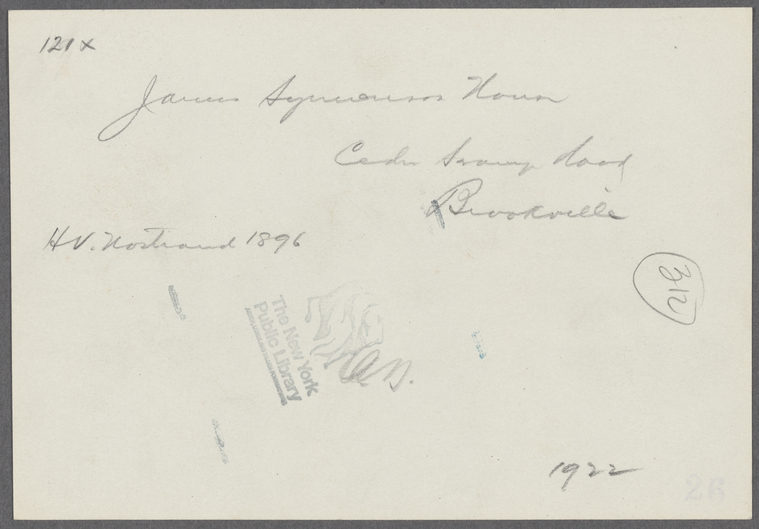 121x
James Symonsons House
Cedar Swamp Road
Brookville
H V. Nostrand 1896
312
The New York
Public Library
1922
26